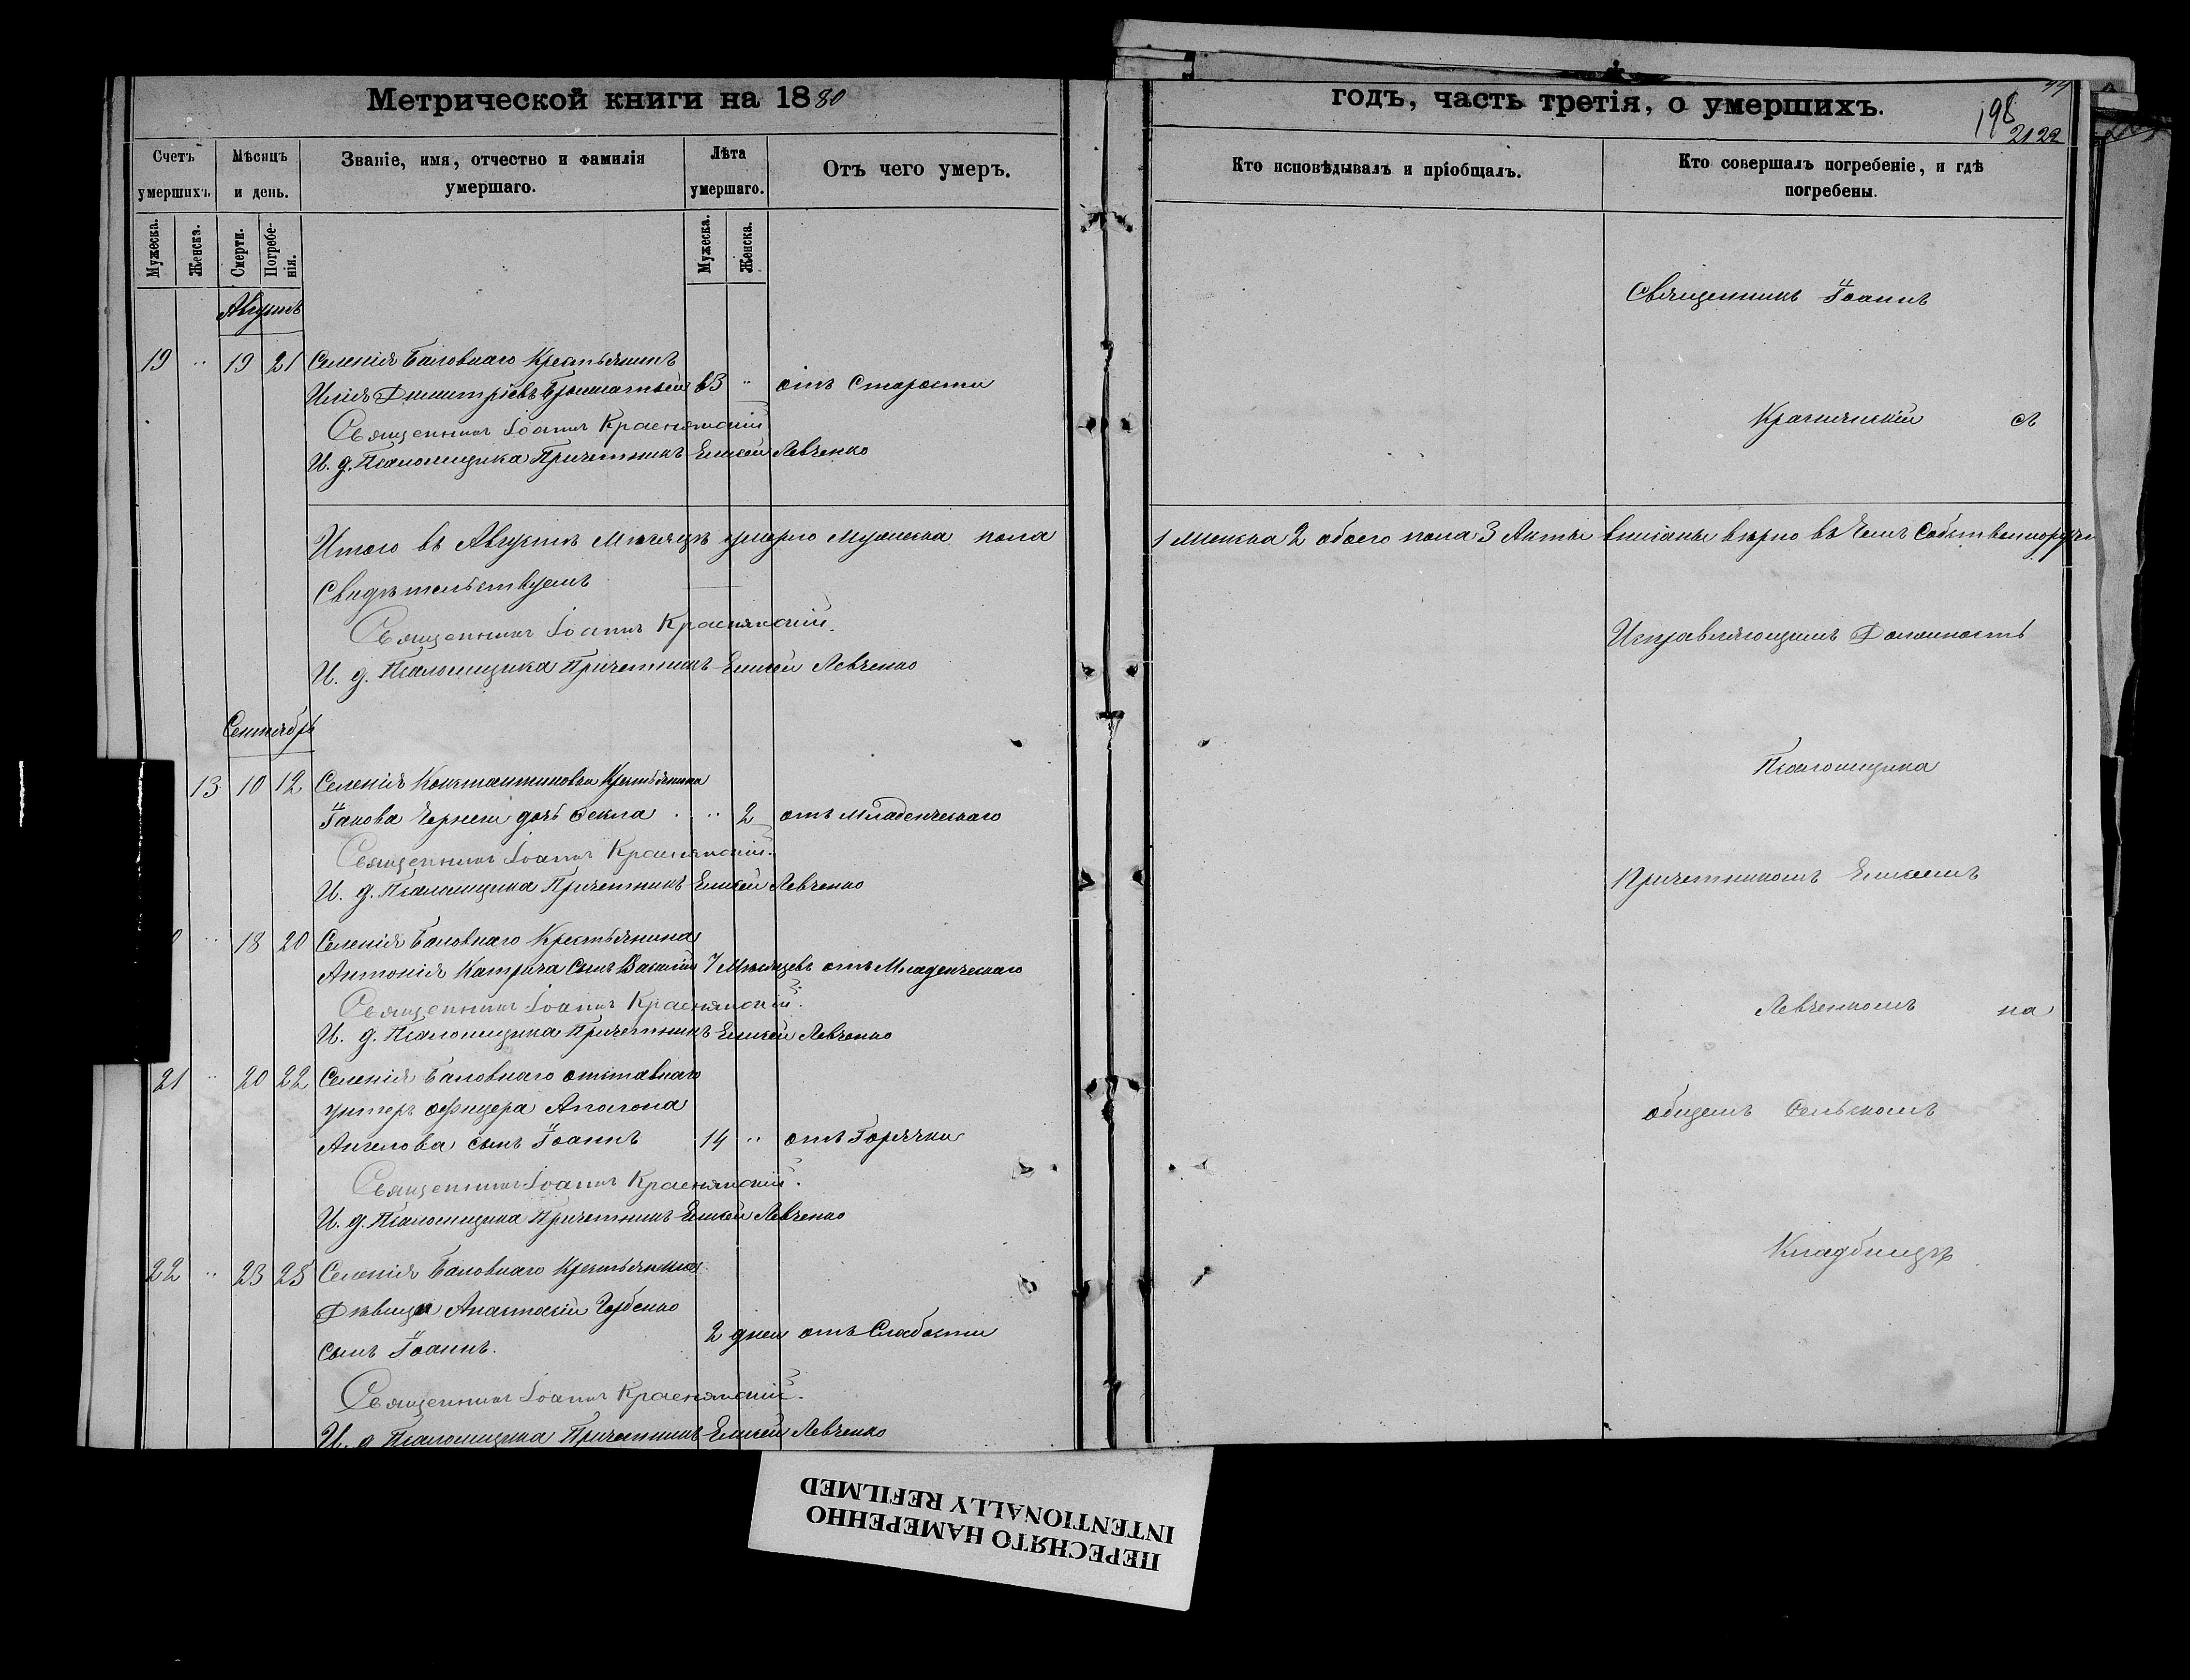 Метрической книги на 1880
годъ, часть третія, о умершихъ.
198
2122
Счетъ умершихъ.
Мѣсяцъ и день.
Званіе, имя, отчество и фамилія умершаго.
Лѣта умершаго.
Отъ чего умеръ.
Кто исповѣдывалъ и пріобщалъ.
Кто совершалъ погребеніе, и гдѣ погребены.
Мужеска.
Женска.
Смерти.
Погребенія.
Мужеска.
Женска.
Августъ
19 " 19 21 Селенія Баловнаго Крестьянинъ
Илія Димитріевъ 63 " отъ Старости
Священникъ Іоаннъ Краснянскій
И. д. Псаломщика Причетникъ Елисей Левченко
Итого въ Августѣ Мѣсяцѣ умерло Мужеска пола
1 Женска 2 обоего пола 3 Акты вписаны вѣрно въ чемъ Собственноручно
Свидѣтельствуемъ
Священникъ Іоаннъ Краснянскій
И. д. Псаломщика Причетникъ Елисей Левченко
Сентябрь
13 10 12 Селенія Константиновки Крестьянина
Іакова Чернеги дочь Ѳекла " 2 отъ младенческаго
Священникъ Іоаннъ Краснянскій.
И. д. Псаломщика Причетникъ Елисей Левченко
" 18 20 Селенія Баловнаго Крестьянина
Антонія Катрича сынъ Василій 7 Мѣсяцевъ отъ Младенческаго
Священникъ Іоаннъ Краснянскій.
И. д. Псаломщика Причетникъ Елисей Левченко
21 " 20 22 Селенія Баловнаго отставнаго
унтеръ офицера Аполона
Ангелова сынъ Іоаннъ 14 " отъ Горячки
Священникъ Іоаннъ Краснянскій.
И. д. Псаломщика Причетникъ Елисей Левченко
22 " 23 25 Селенія Баловнаго Крестьянки
Дѣвицы Анастасіи
сынъ Іоаннъ. 2 дней отъ Слабости
Священникъ Іоаннъ Краснянскій.
И. д. Псаломщика Причетникъ Елисей Левченко
Священникъ Іоаннъ
Краснянскій съ
Исправляющимъ Должность
Псаломщика
Причетникомъ Елисеемъ
Левченкомъ на
общемъ Сельскомъ
Кладбищѣ
ПЕРЕСНЯТО НАМЕРЕННО
INTENTIONALLY REFILMED